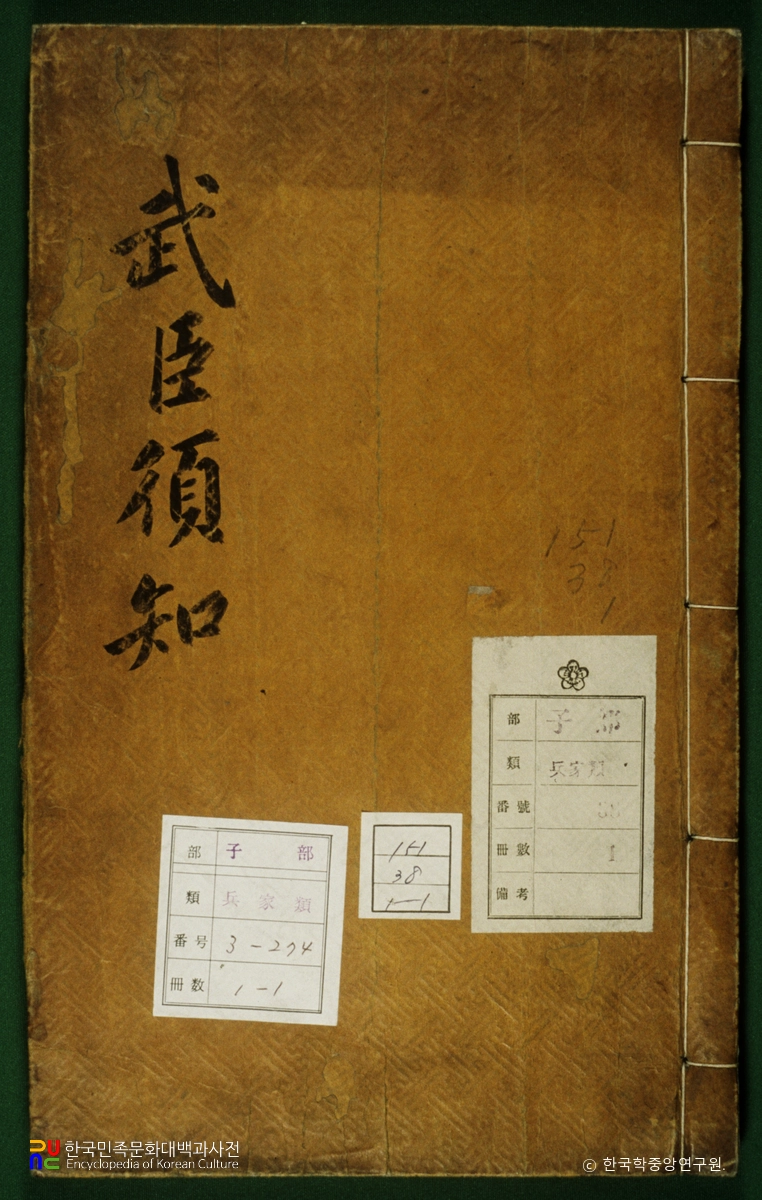 武臣須知
151
38
1
部 子 部
類 兵家類
番號 38
冊數 1
備考
151
38
1-1
部 子 部
類 兵家類
番号 3-274
冊数 1-1
한국민족문화대백과사전
Encyclopedia of Korean Culture
ⓒ 한국학중앙연구원